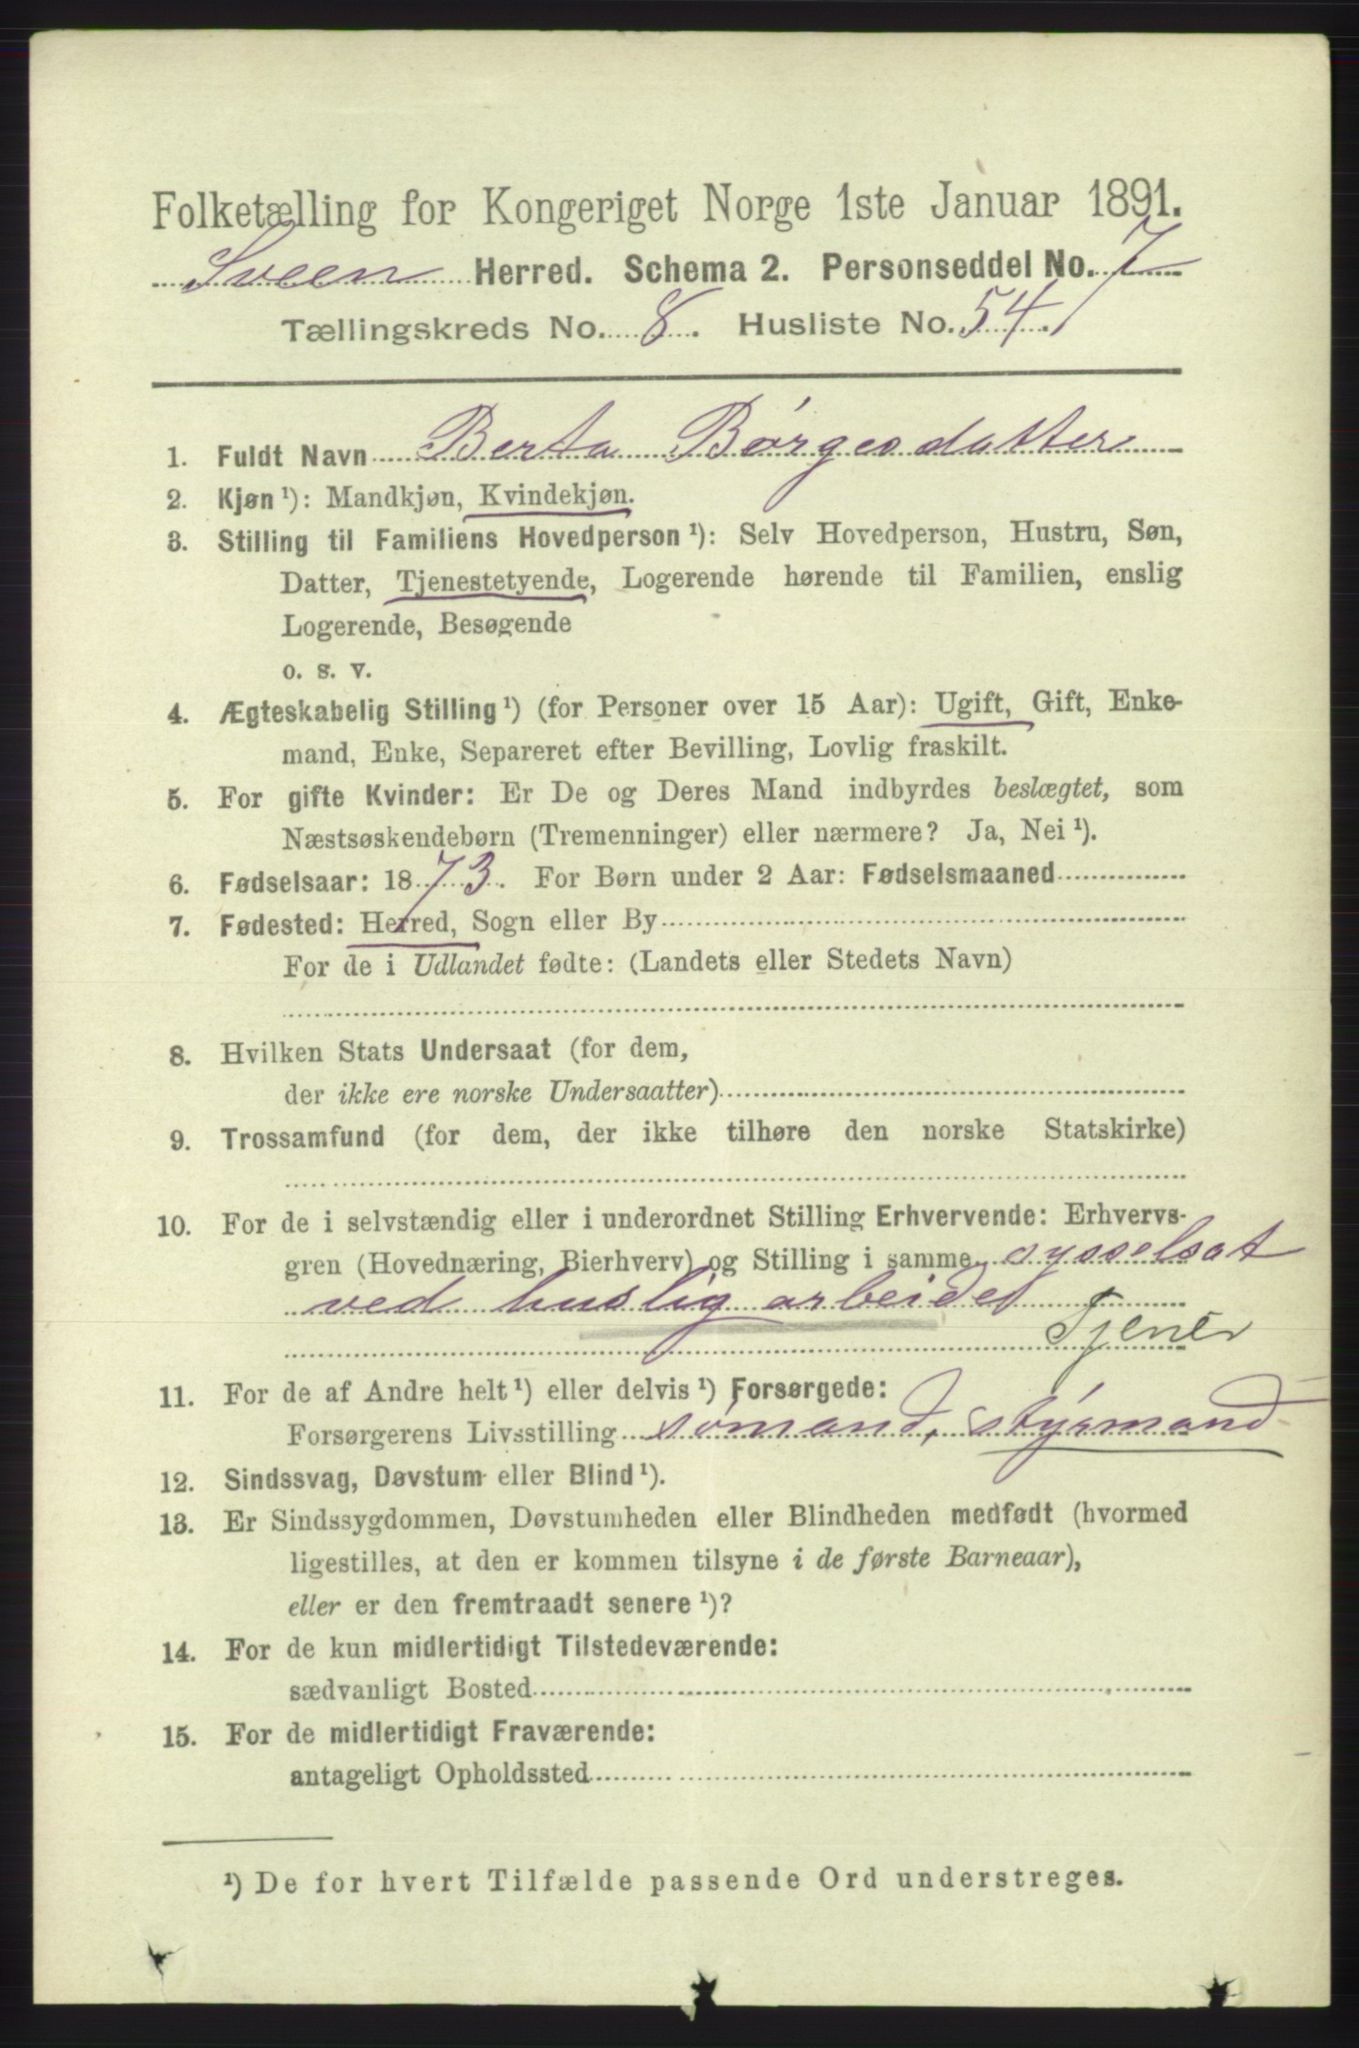 Folketælling for Kongeriget Norge 1ste Januar 1891.
Sveen Herred. Schema 2. Personseddel No. 7
Tællingskreds No. 8. Husliste No. 54.
1. Fuldt Navn Berta Børgesdatter
2. Kjøn ¹): Mandkjøn, Kvindekjøn.
3. Stilling til Familiens Hovedperson ¹): Selv Hovedperson, Hustru, Søn,
Datter, Tjenestetyende, Logerende hørende til Familien, enslig
Logerende, Besøgende
o. s. v.
4. Ægteskabelig Stilling ¹) (for Personer over 15 Aar): Ugift, Gift, Enke-
mand, Enke, Separeret efter Bevilling, Lovlig fraskilt.
5. For gifte Kvinder: Er De og Deres Mand indbyrdes beslægtet, som
Næstsøskendebørn (Tremenninger) eller nærmere? Ja, Nei ¹).
6. Fødselsaar: 1873. For Børn under 2 Aar: Fødselsmaaned
7. Fødested: Herred, Sogn eller By
For de i Udlandet fødte: (Landets eller Stedets Navn)
8. Hvilken Stats Undersaat (for dem,
der ikke ere norske Undersaatter)
9. Trossamfund (for dem, der ikke tilhøre den norske Statskirke)
10. For de i selvstændig eller i underordnet Stilling Erhvervende: Erhvervs-
gren (Hovednæring, Bierhverv) og Stilling i samme sysselsat
ved huslig arbeide
Tjener
11. For de af Andre helt ¹) eller delvis ¹) Forsørgede:
Forsørgerens Livsstilling sømand, styrmand
12. Sindssvag, Døvstum eller Blind ¹).
13. Er Sindssygdommen, Døvstumheden eller Blindheden medfødt (hvormed
ligestilles, at den er kommen tilsyne i de første Barneaar),
eller er den fremtraadt senere ¹)?
14. For de kun midlertidigt Tilstedeværende:
sædvanligt Bosted
15. For de midlertidigt Fraværende:
antageligt Opholdssted
¹) De for hvert Tilfælde passende Ord understreges.